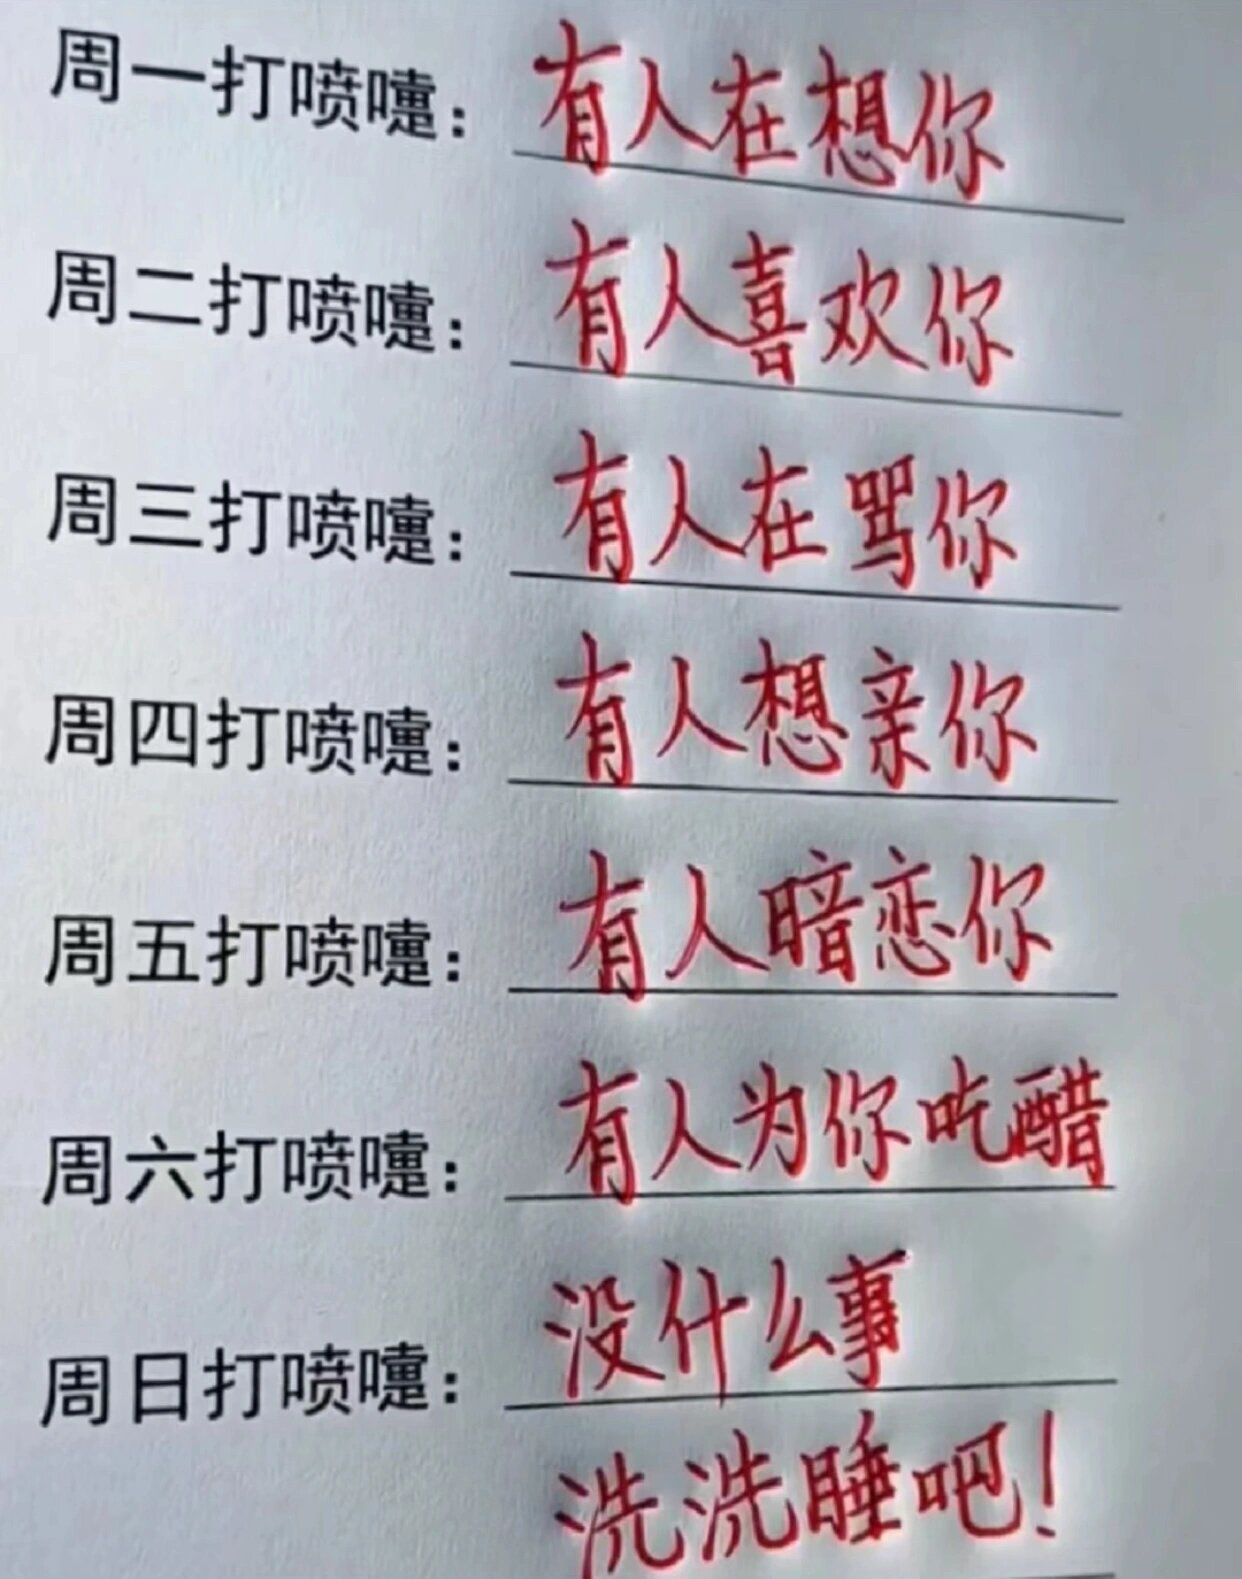 周一打喷嚏：有人在想你
周二打喷嚏：有人喜欢你
周三打喷嚏：有人在骂你
周四打喷嚏：有人想亲你
周五打喷嚏：有人暗恋你
周六打喷嚏：有人为你吃醋
周日打喷嚏：没什么事
洗洗睡吧！